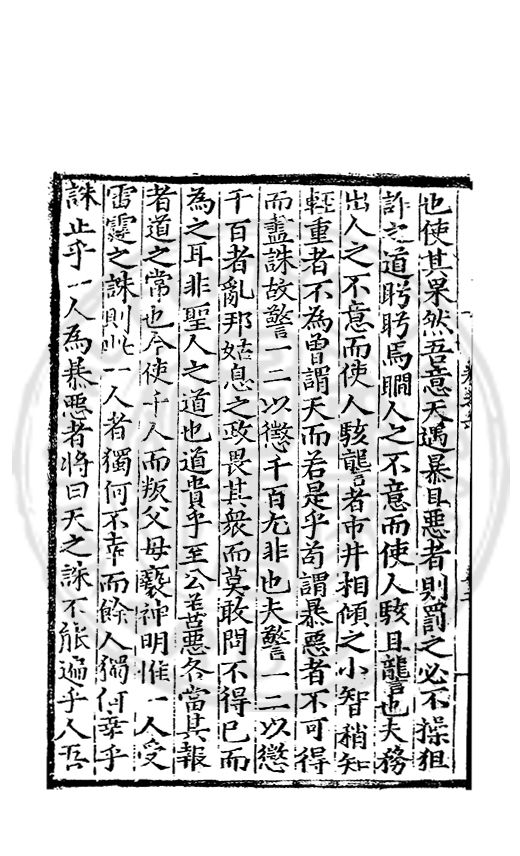 也使其果然吾意天遇暴且惡者則罰之必不操狙
詐之道盻盻焉瞷人之不意而使人駭且讋也夫務
出人之不意而使人駭讋者市井相傾之小智稍知
輕重者不為曾謂天而若是乎茍謂暴惡者不可得
而盡誅故警一二以懲千百尤非也夫警一二以懲
千百者亂邦姑息之政畏其衆而莫敢問不得已而
為之耳非聖人之道也道貴乎至公善惡各當其報
者道之常也今使千人而叛父母褻神明惟一人受
雷霆之誅則此一人者獨何不幸而餘人獨何幸乎
誅止乎一人為暴惡者將曰天之誅不能遍乎人吾